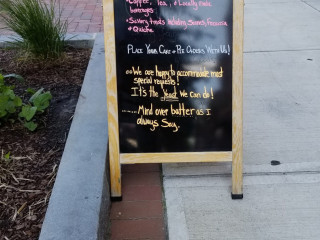 • Coffee, Tea, & Locally made
beverages
• Savory foods including Scones, Foccacia
& Quiche
Place Your Cake or Pie Orders With Us!
We are happy to accommodate most
special requests!
It's the Yeast We can do!
........Mind over butter as I
always Say.